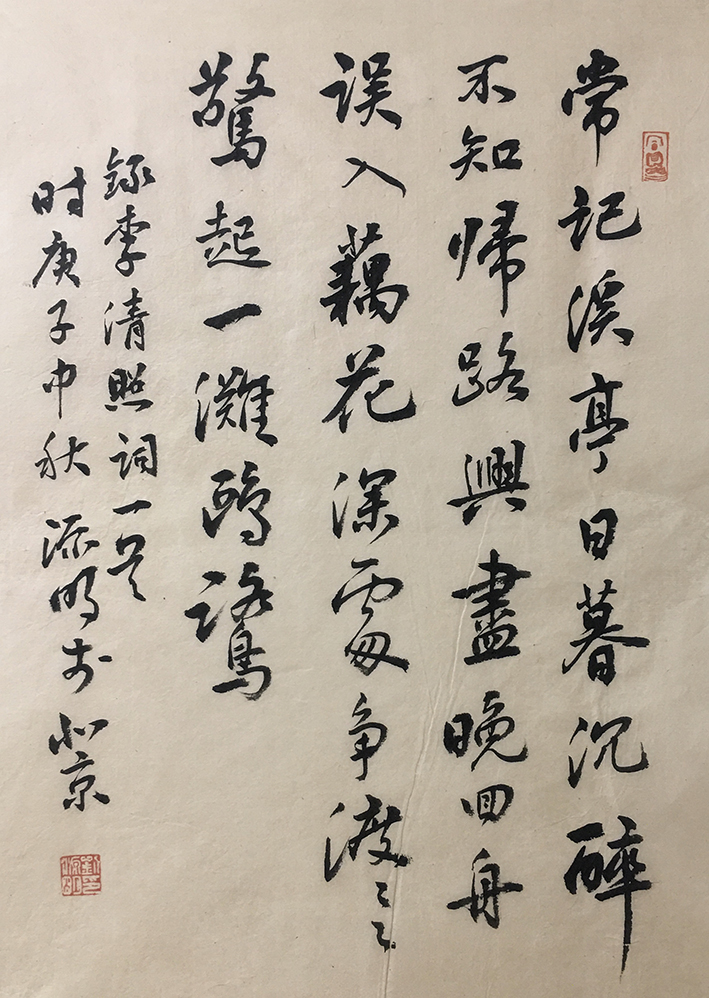 常記溪亭日暮沉醉
不知帰路興盡晚回舟
誤入藕花深處争渡〻〻
驚起一灘鷗鷺
錄李清照詞一首
时庚子中秋 添明於北京